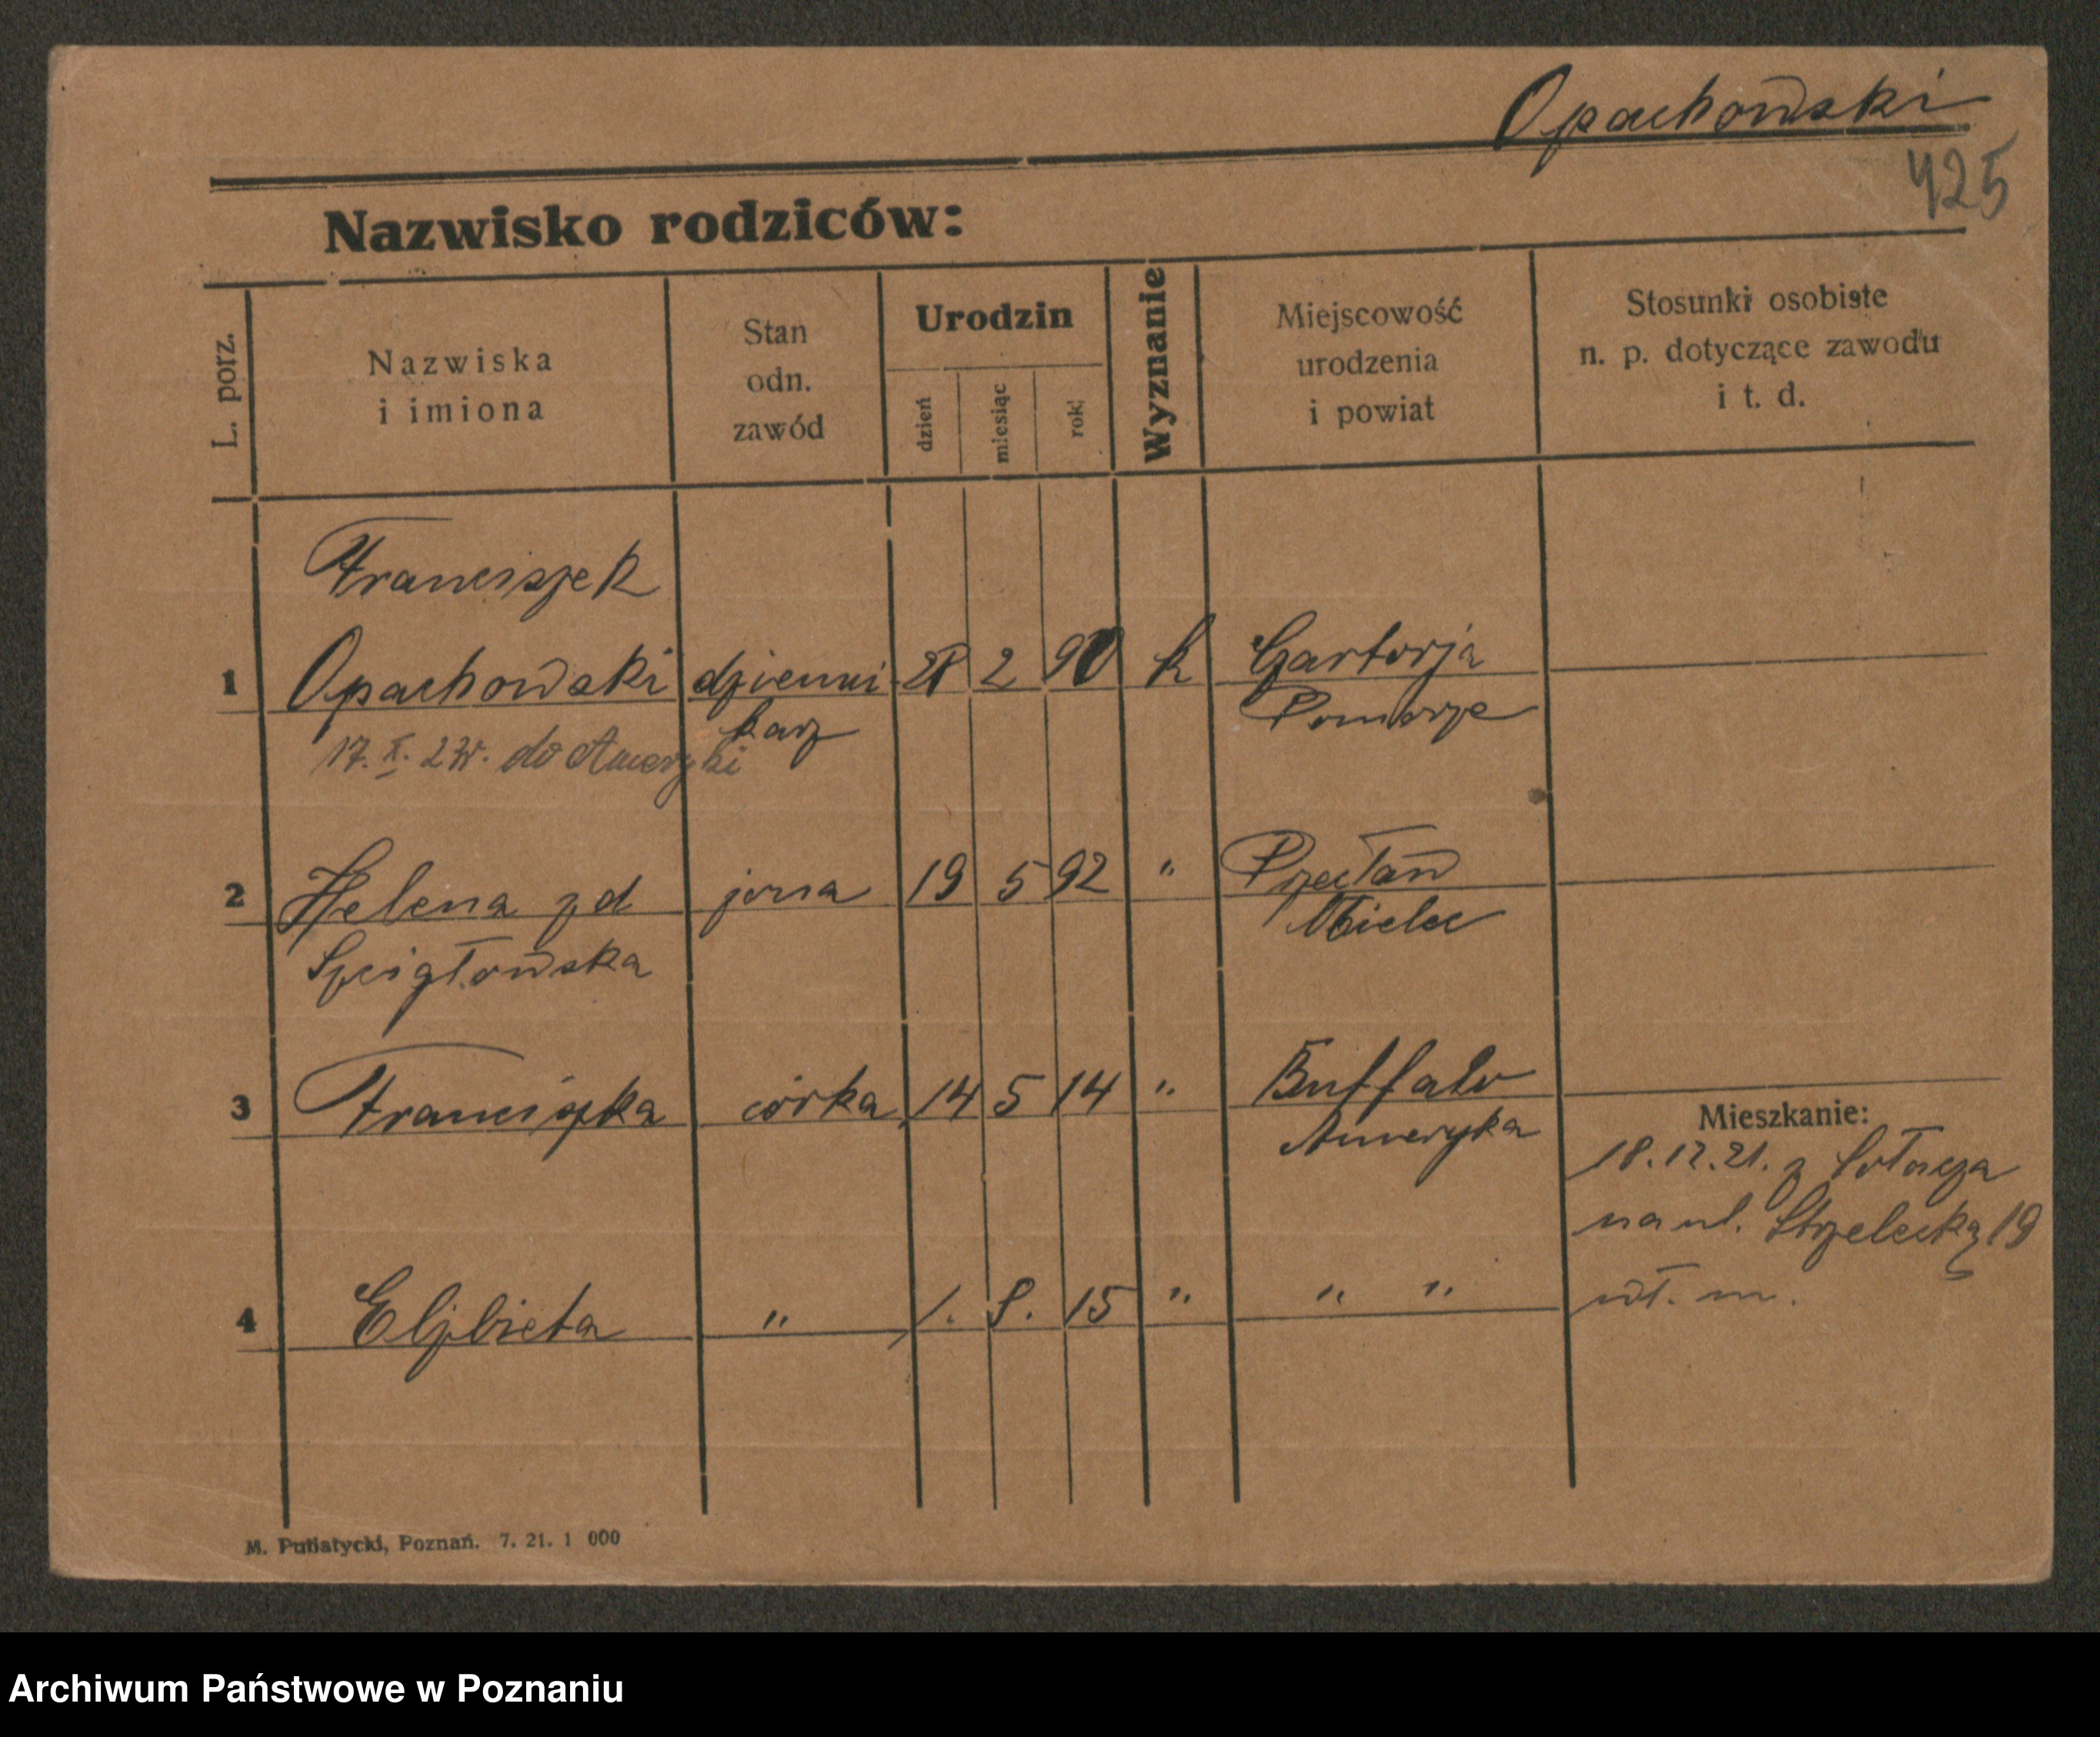 Opachowski
425
Nazwisko rodziców:
L. porz.
Nazwiska
i imiona
Stan
odn.
zawód
Urodzin
dzień
miesiąc
rok
Wyznanie
Miejscowość
urodzenia
i powiat
Stosunki osobiste
n. p. dotyczące zawodu
i t. d.
Franciszek
1 Opachowski dzienni 28 2 90 k
karz Pomorze
17. X. 23r. do Ameryki
2 Helena zd żona 19 5 92 " Przecław
Mielec
3 Franciszka córka 14 5 14 " Buffalo
Ameryka
Mieszkanie:
18.12.21. z Sołacza
na ul. Strzelecką 19
4 Elżbieta " 1. 8. 15 " " "
wł. m.
M. Putiatycki, Poznań. 7. 21. 1 000
Archiwum Państwowe w Poznaniu